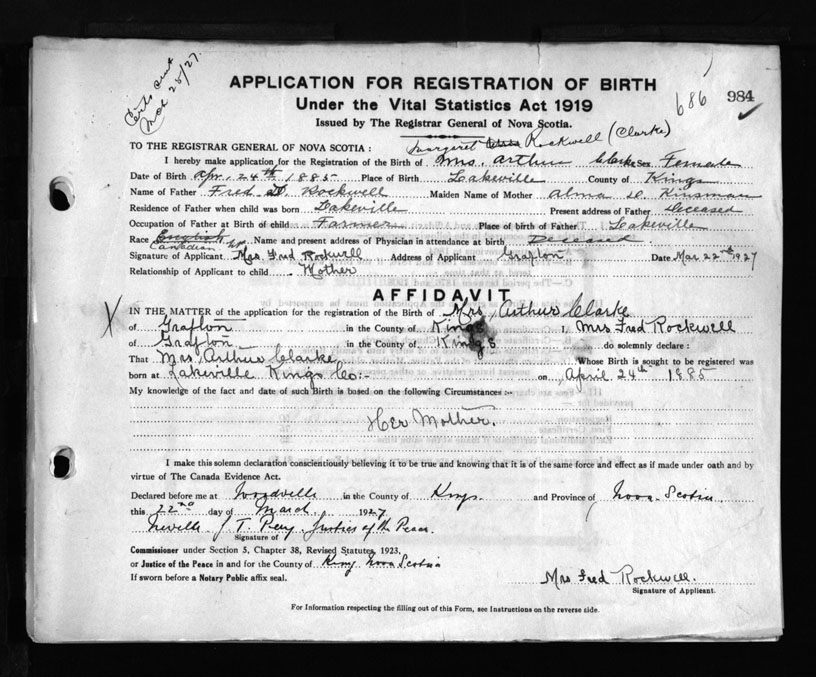 Certs sent
Mar 28/27.
686
984
APPLICATION FOR REGISTRATION OF BIRTH
Under the Vital Statistics Act 1919
Issued by The Registrar General of Nova Scotia.
Margaret Rockwell (Clarke)
TO THE REGISTRAR GENERAL OF NOVA SCOTIA :
I hereby make application for the Registration of the Birth of Mrs. Arthur Clarke Sex Female
Date of Birth Apr. 24th 1885 Place of Birth Lakeville County of Kings
Name of Father Fred D. Rockwell Maiden Name of Mother Alma D. Kinsman
Residence of Father when child was born Lakeville Present address of Father Deceased
Occupation of Father at Birth of child Farmer Place of birth of Father Lakeville
Race English Canadian Name and present address of Physician in attendance at birth Deceased.
Signature of Applicant Mrs. Fred Rockwell Address of Applicant Grafton Date Mar 22nd 1927
Relationship of Applicant to child Mother
AFFIDAVIT
X
IN THE MATTER of the application for the registration of the Birth of Mrs, Arthur Clarke
of Grafton in the County of Kings I, Mrs Fred Rockwell
of Grafton in the County of King,s do solemnly declare :
That Mrs, Arthur Clarke Whose Birth is sought to be registered was
born at Lakeville Kings Co:- on April 24th 1885
My knowledge of the fact and date of such Birth is based on the following Circumstances :-
Her Mother.
I make this solemn declaration conscientiously believing it to be true and knowing that it is of the same force and effect as if made under oath and by
virtue of The Canada Evidence Act.
Declared before me at Woodville in the County of Kings. and Province of Nova Scotia
this 22nd day of March 1927
Neville T. Justice of the Peace.
Signature of
Commissioner under Section 5, Chapter 38, Revised Statutes, 1923,
or Justice of the Peace in and for the County of Kings Nova Scotia
If sworn before a Notary Public affix seal.
Mrs Fred Rockwell.
Signature of Applicant.
For Information respecting the filling out of this Form, see Instructions on the reverse side.